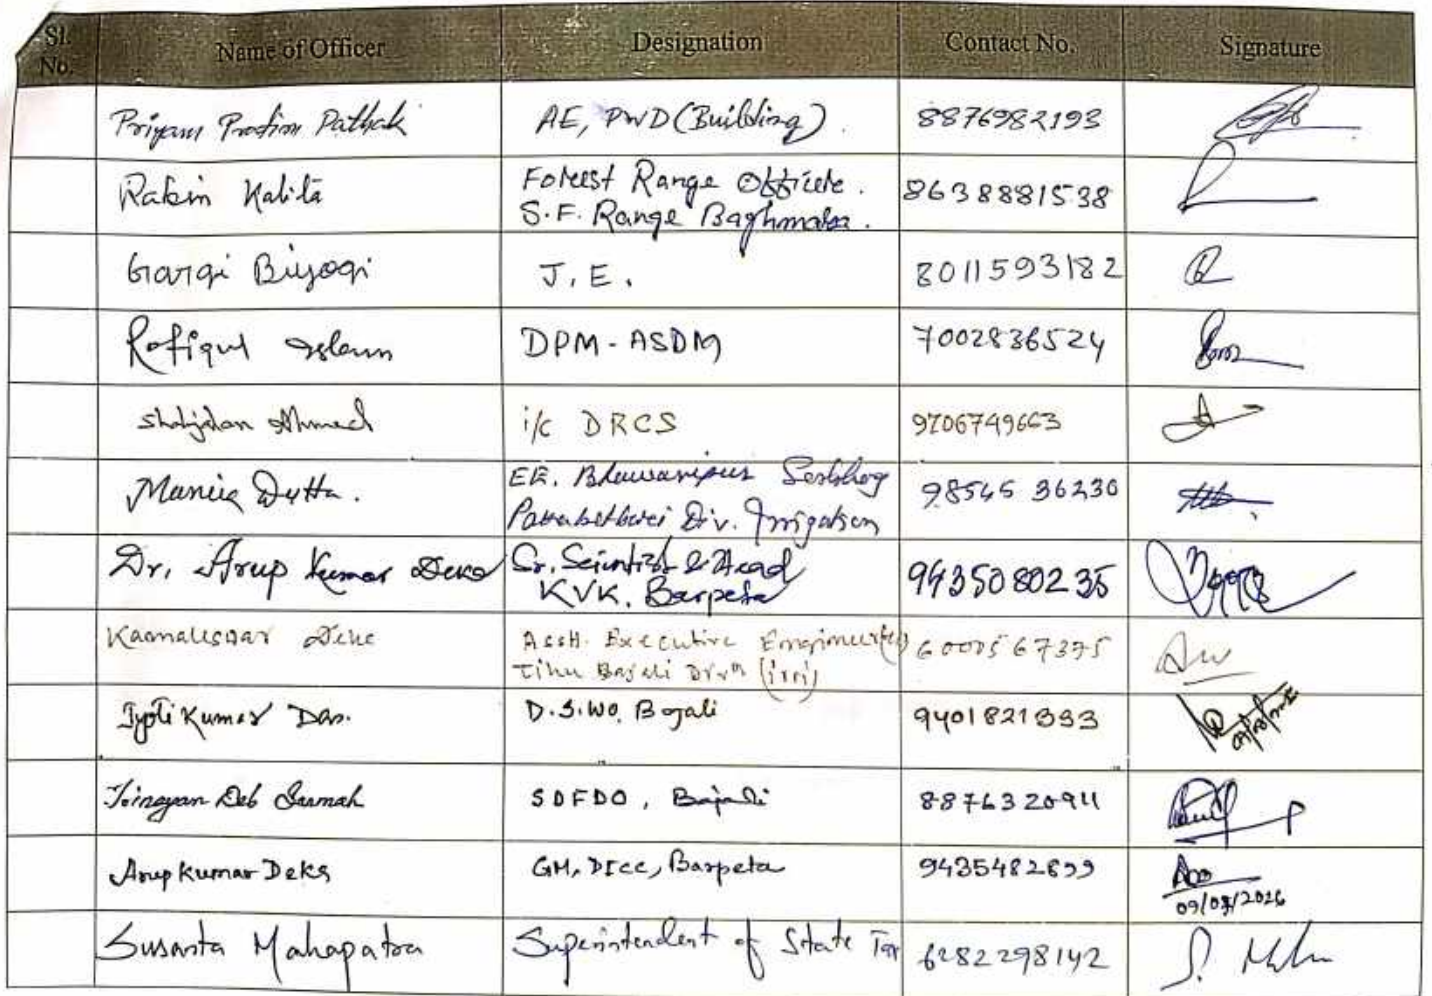 Sl. No. Name of Officer Designation Contact No. Signature
Priyam Pratim Pathak AE, PWD (Building). 8876982193
Rabin Kalita Forest Range Officer. 8638881538
S.F. Range Baghmara.
Gargi Biyogi J.E. 8011593182
Rofiqul Islam DPM - ASDM 7002836524
Shahjalan Ahmed i/c DRCS 9706749663
Dutta. EE, Bhawanipur 98545 36230
Div. Irrigation
Dr. Arup Kumar Deka Sr. Scientist & Head 9435080235
KVK, Barpeta
Kaamaleswar Deka Asstt. Executive Engineer 6000567375
Tihu Bajali Divn (irri)
Jyoti Kumar Das. D.S.WO, Bajali 9401821333
Deb Sarmah SDFDO, Bajali 8876320911
Arup Kumar Deka GM, DICC, Barpeta 9435482899
09/03/2026
Susanta Mahapatra Superintendent of State Tax 6282298142